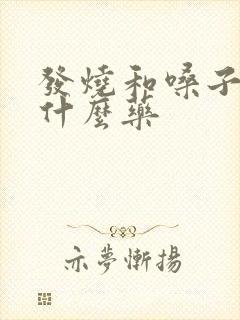 發燒和嗓子
什麼藥
亦夢慚揚